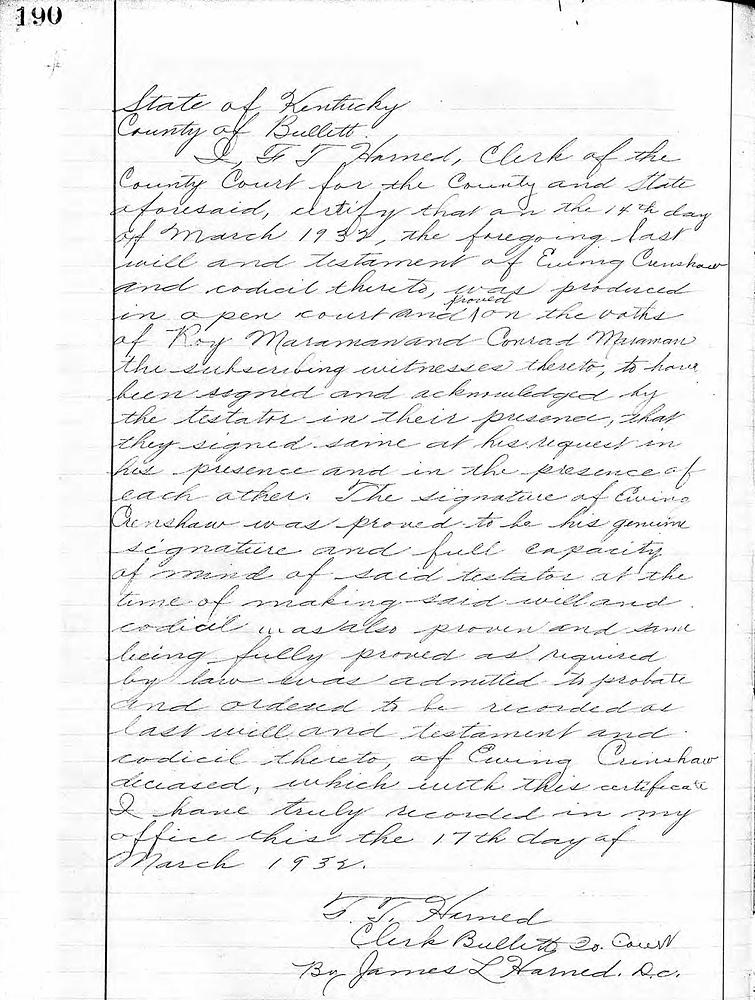 190
State of Kentucky
County of Bullett
I, F T Harned, Clerk of the
County Court for the County and State
aforesaid, certify that on the 14th day
of March 1932, the foregoing last
will and testament of Ewing Crenshaw
and codicil thereto, was produced
in open court and proved on the oaths
of Roy Maraman and Conrad Maraman
the subscribing witnesses thereto, to have
been signed and acknowledged by
the testator in their presend, that
they signed same at his request in
his presence and in the presence of
each other. The signature of Ewing
Crenshaw was proved to be his genuine
signature and full capacity
of mind of said testator at the
time of making said will and
codicil was also proven and same
being fully proved as required
by law was admitted to probate
and ordered to be recorded as
last will and testament and
codicil thereto, of Ewing Crenshaw
deceased, which with this certificate
I have truly recorded in my
office this the 17th day of
March 1932.
T. T. Harned
Clerk Bullett Co. Court
By James L Harned. D.C.